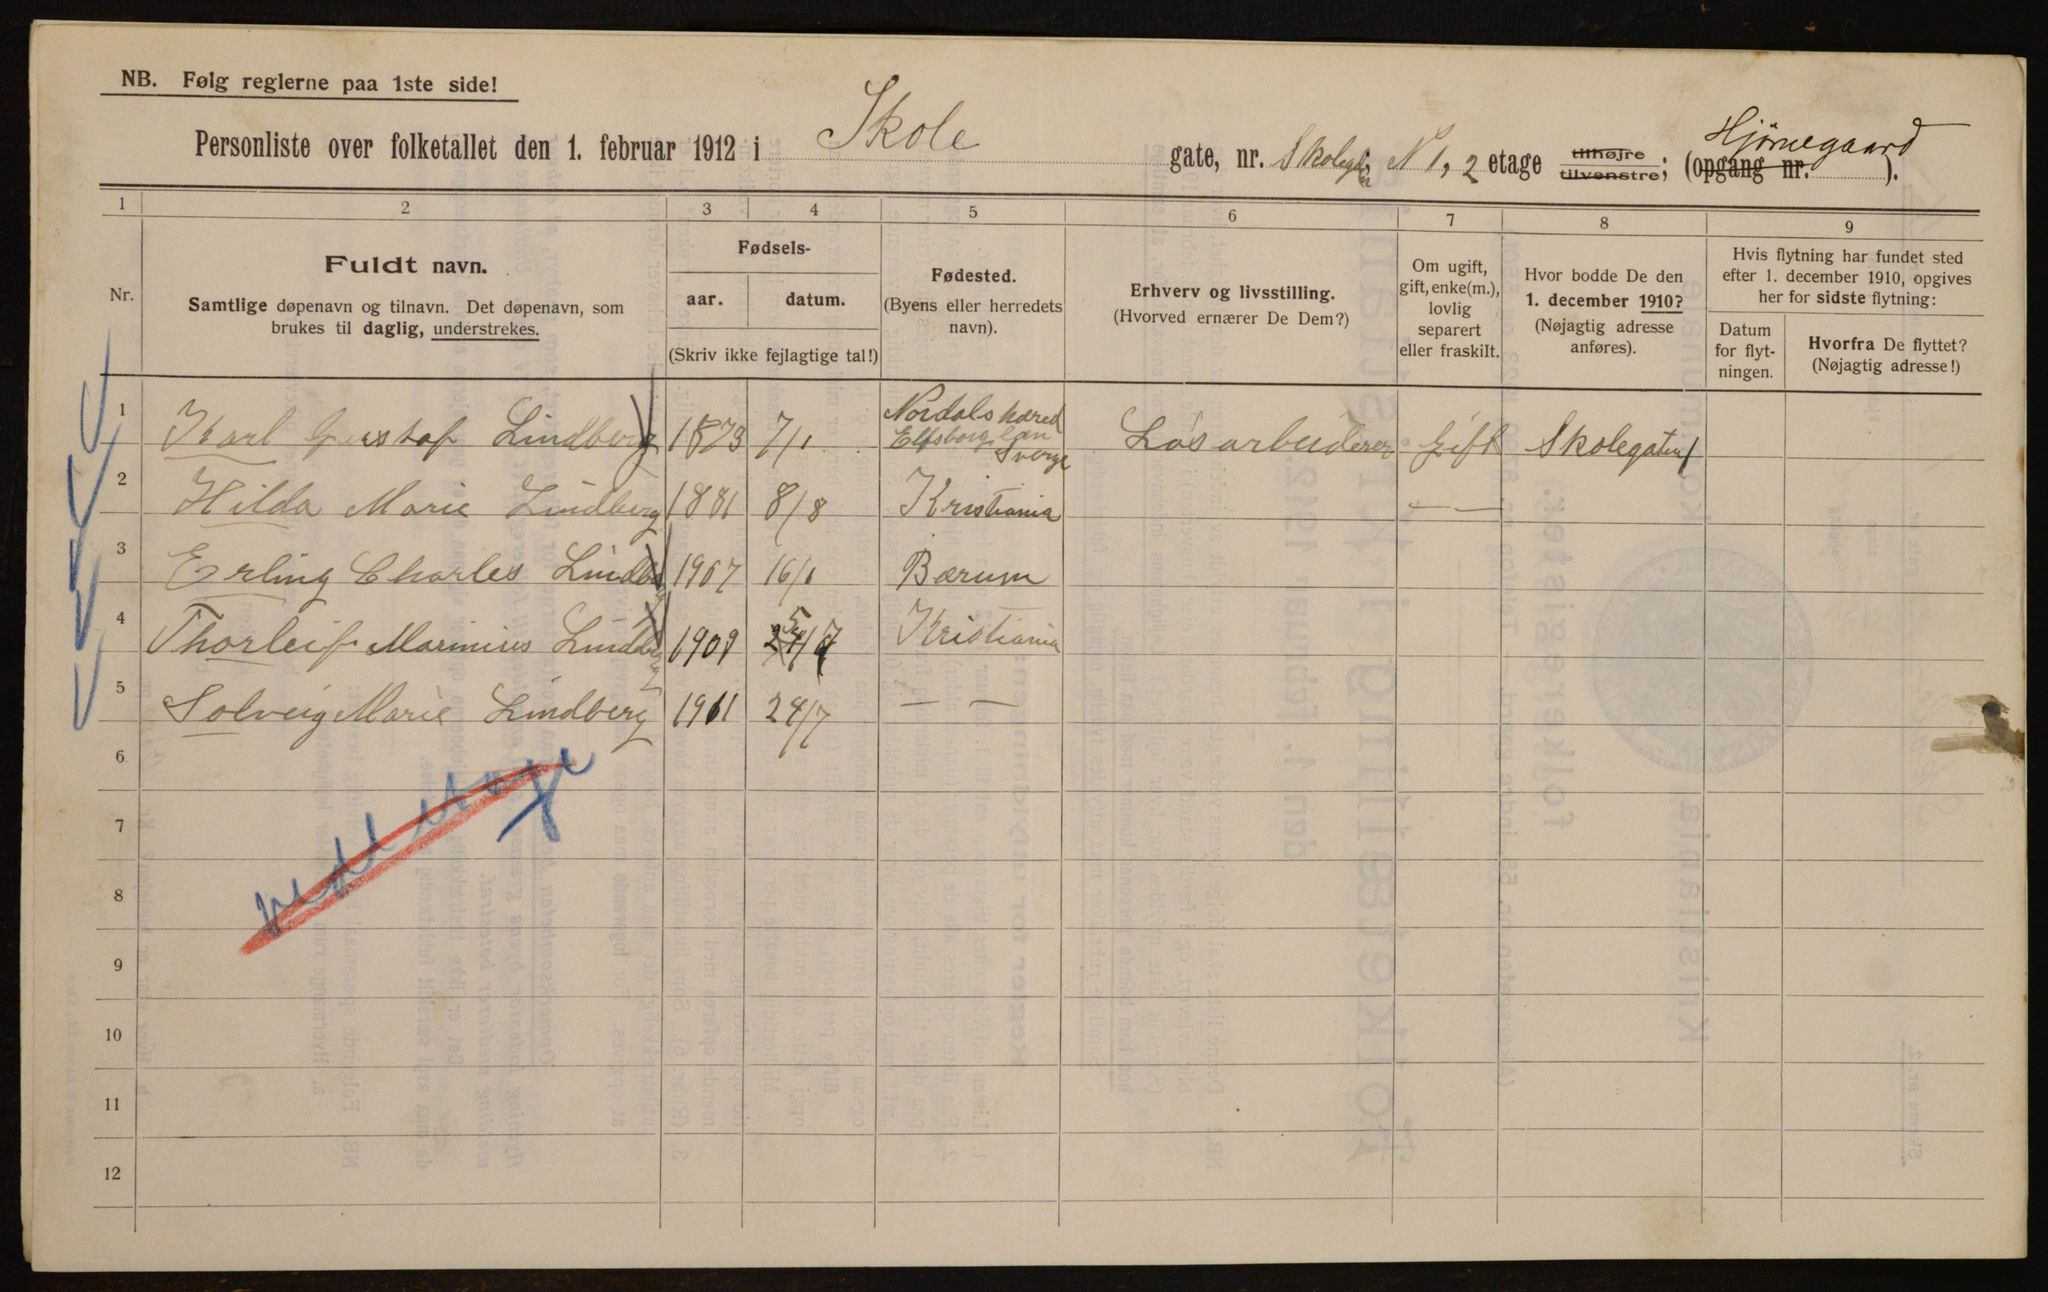 NB. Følg reglerne paa 1ste side!
Personliste over folketallet den 1. februar 1912 i Skole gate, nr. Skolegt. N 1, 2 etage tilhøjre tilvenstre; (opgang nr. Hjørnegaard).
1 2 3 4 5 6 7 8 9
Nr.
Fuldt navn.
Samtlige døpenavn og tilnavn. Det døpenavn, som
brukes til daglig, understrekes.
Fødsels-
aar. datum.
(Skriv ikke fejlagtige tal!)
Fødested.
(Byens eller herredets
navn).
Erhverv og livsstilling.
(Hvorved ernærer De Dem?)
Om ugift,
gift, enke(m.),
lovlig
separert
eller fraskilt.
Hvor bodde De den
1. december 1910?
(Nøjagtig adresse
anføres).
Hvis flytning har fundet sted
efter 1. december 1910, opgives
her for sidste flytning:
Datum
for flyt-
ningen.
Hvorfra De flyttet?
(Nøjagtig adresse!)
1 Karl Gustaf Lindberg 1873 7/1 Nordals hæred Elfsborg län Sverge Løsarbeiderer Gift Skolegaten 1
2 Hilda Marie Lindberg 1881 8/8 Kristiania — —
3 Erling Charles Lindberg 1907 16/1 Bærum
4 Thorleif Marinius Lindberg 1909 5/7 Kristiania
5 Solveig Marie Lindberg 1911 24/7 — —
6
7
8
9
10
11
12